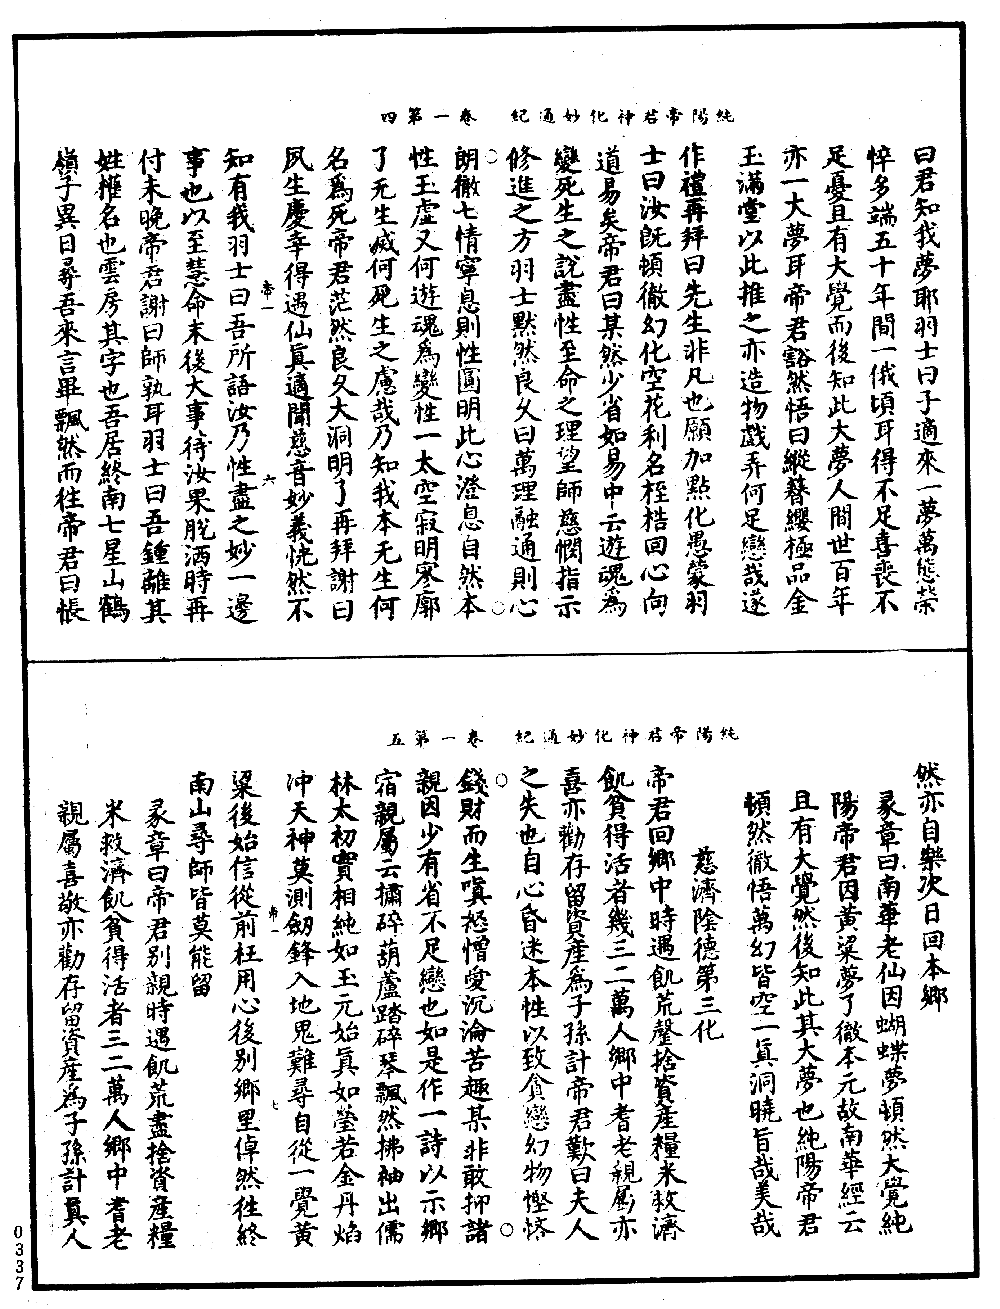 純陽帝君神化妙通紀　卷一第四
曰君知我夢耶羽士曰子適來一夢萬態榮
悴多端五十年間一俄頃耳得不足喜喪不
足憂且有大覺而後知此大夢人間世百年
亦一大夢耳帝君豁然悟曰縱簪纓極品金
玉滿堂以此推之亦造物戲弄何足戀哉遂
作禮再拜曰先生非凡也願加點化愚蒙羽
士曰汝旣頓徹幻化空花利名桎梏回心向
道易矣帝君曰某然少省如易中云遊魂爲
變死生之說盡性至命之理望師慈憫指示
修進之方羽士默然良久曰萬理融通則心
朗徹七情寧息則性圓明此心澄息自然本
性玉虛又何遊魂爲變性一太空寂明寥廓
了元生滅何死生之慮哉乃知我本无生何
名爲死帝君茫然良久大洞明了再拜謝曰
夙生慶幸得遇仙眞適聞慈音妙義恍然不
帝一　六
知有我羽士曰吾所語汝乃性盡之妙一邊
事也以至慧命末後大事待汝果脫洒時再
付未晚帝君謝曰師孰耳羽士曰吾鍾離其
姓權名也雲房其字也吾居終南七星山鶴
嶺子異日尋吾來言畢飄然而往帝君曰悵
純陽帝君神化妙通紀　卷一第五
然亦自樂次日回本鄉
彖章曰南華老仙因蝴蝶夢頓然大覺純
陽帝君因黃粱夢了徹本元故南華經云
且有大覺然後知此其大夢也純陽帝君
頓然徹悟萬幻皆空一眞洞曉旨哉美哉
慈濟陰德第三化
帝君回鄉中時遇飢荒罄捨資產糧米救濟
飢貧得活者幾三二萬人鄉中耆老親屬亦
喜亦勸存留資產爲子孫計帝君歎曰夫人
之失也自心昏迷本性以致貪戀幻物慳悋
錢財而生嗔怒憎愛沉淪苦趣某非敢抑諸
親因少有省不足戀也如是作一詩以示鄉
宿親屬云擂碎葫蘆踏碎琴飄然拂袖出儒
林太初實相純如玉元始眞如瑩若金丹焰
冲天神莫測劒鋒入地鬼難尋自從一覺黃
帝一　七
粱後始信從前枉用心後别鄉里倬然徃終
南山尋師皆莫能留
彖章曰帝君别親時遇飢荒盡捨資產糧
米救濟飢貧得活者三二萬人鄉中耆老
親屬喜敬亦勸存留資產爲子孫計眞人
0337